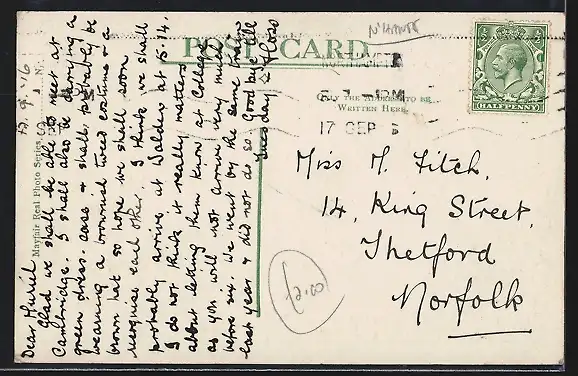 N'HANTS
POST CARD
NORTHAMPTON
ONLY THE ADDRESS TO BE
WRITTEN HERE.
12 PM
17 SEP
HALFPENNY
Mayfair Real Photo Series
15.9.16
Dear Muriel
Glad we shall be able to meet at
Cambridge. I shall also be carrying a
green dress case & shall probably be
wearing a brownish tweed costume & a
brown hat so hope we shall soon
recognise each other. I think we shall
probably arrive at Walden at 5.14.
I do not think it really matters
about letting them know at College
as you will not arrive very much
before six. We went by the same train
last year & did not do so Good bye till
Tuesday Floss
Miss M. Fitch,
14, King Street,
Thetford
Norfolk
£2.00